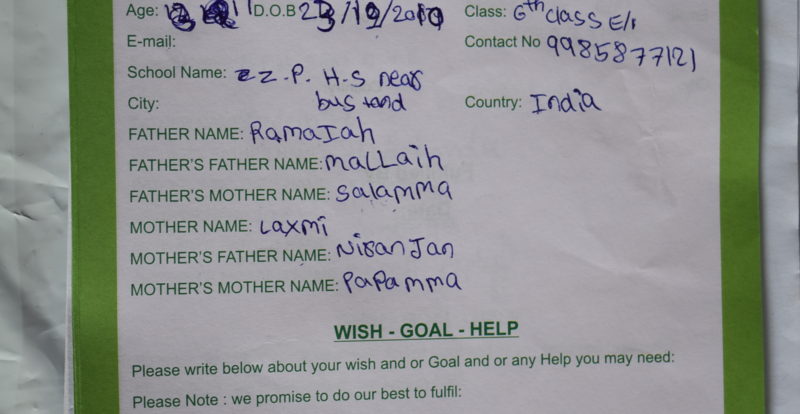 Age: 11 D.O.B 23/10/2010 Class: 6th class E/
E-mail: Contact No 9985877121
School Name: Z.P. H-S near
City: bus Country: India
FATHER NAME: Ramaiah
FATHER'S FATHER NAME: maLLaih
FATHER'S MOTHER NAME: Salamma
MOTHER NAME: Laxmi
MOTHER'S FATHER NAME: NiranJan
MOTHER'S MOTHER NAME: PaPamma
WISH - GOAL - HELP
Please write below about your wish and or Goal and or any Help you may need:
Please Note : we promise to do our best to fulfil: